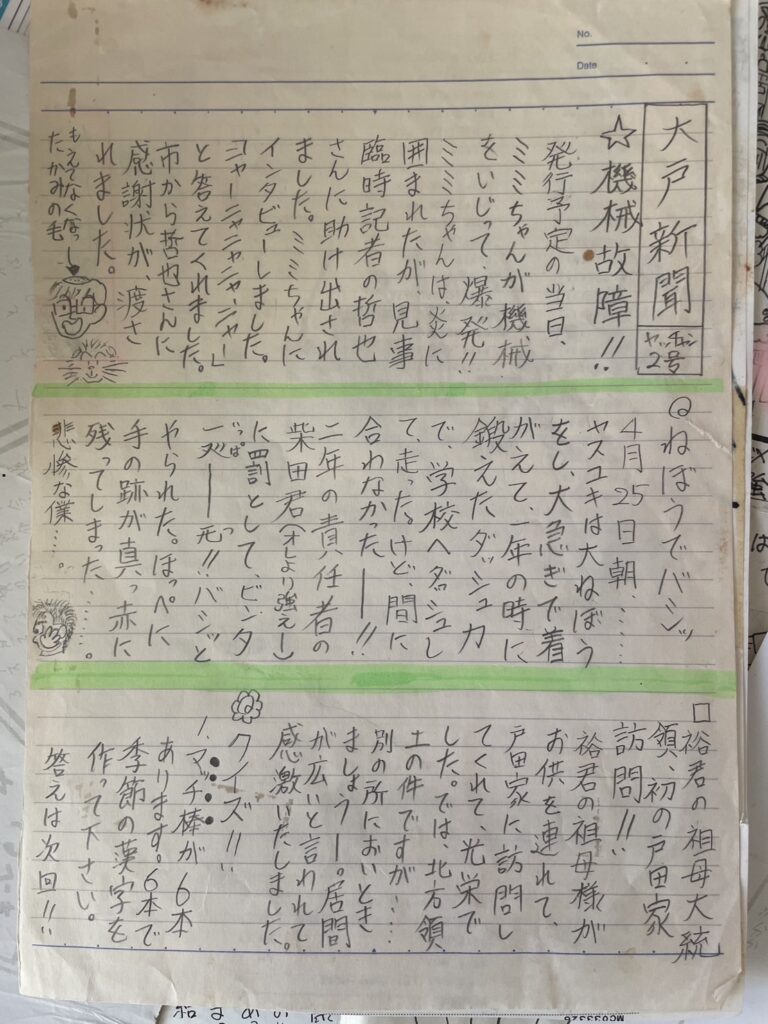 No.
Date
大戸新聞
ヤッチャン
2号
☆機械故障!!
発行予定の当日、
ミミちゃんが機械
をいじって、爆発!!
ミミちゃんは、炎に
囲まれたが、見事
臨時記者の哲也
さんに助け出され
ました。ミミちゃんに
インタビューしました。
「ニャーニャニャニャーニャー」
と答えてくれました。
市から哲也さんに
感謝状が、渡さ
れました。
もえてなくなっ
たかみの毛
ねぼうでバシッ
4月25日朝、……
ヤスユキは大ねぼう
をし、大急ぎで着
がえて、一年の時に
鍛えたダッシュ力
で、学校へダッシュし
て、走った。けど、間に
合わなかったーー!!
二年の責任者の
柴田君(オレより強えー)
に罰として、ビンタ
一発ーー!!バシッと
いっぱつ
やられた。ほっぺに
手の跡が真っ赤に
残ってしまった……。
悲惨な僕…。
□裕君の祖母大統
領、初の戸田家
訪問!!
裕君の祖母様が
お供を連れて、
戸田家に訪問し
てくれて、光栄で
した。では、北方領
土の件ですが……
別の所においとき
ましょうー。居間
が広いと言われて
感激いたしました。
クイズ!!
1.マッチ棒が6本
あります。6本で
季節の漢字を
作って下さい。
答えは次回!!
MC033326